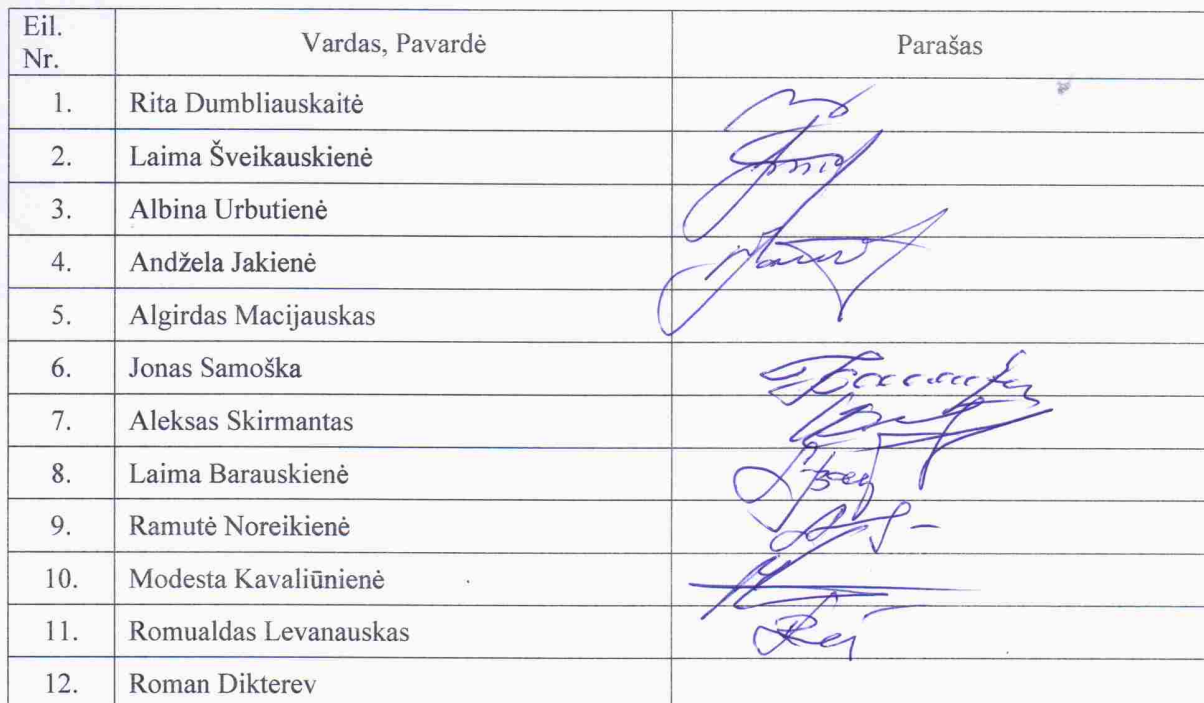 Eil. Nr. Vardas, Pavardė Parašas
1. Rita Dumbliauskaitė
2. Laima Šveikauskienė
3. Albina Urbutienė
4. Andžela Jakienė
5. Algirdas Macijauskas
6. Jonas Samoška
7. Aleksas Skirmantas
8. Laima Barauskienė
9. Ramutė Noreikienė
10. Modesta Kavaliūnienė
11. Romualdas Levanauskas
12. Roman Dikterev